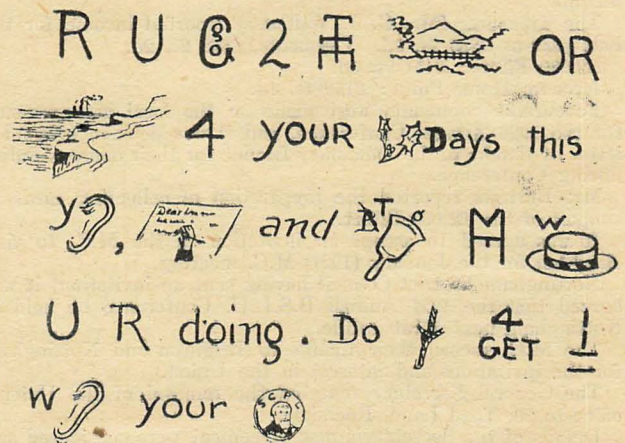 R U G 2 THE OR
4 YOUR Days this
Y , Dear and ME W
U R doing. Do 4 GET
W your